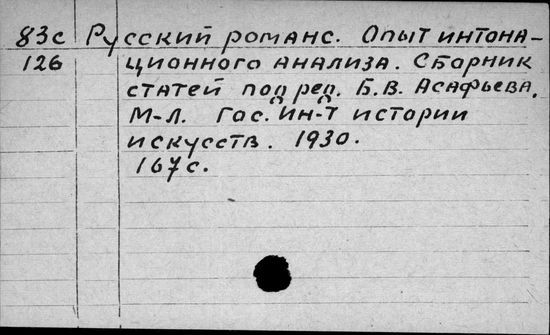 83с Русский романс. Опыт интона-
126 ционного анализа. Сборник
статей под ред. Б.В. Асафьева.
М-Л. Гос. Ин-т истории
искусств. 1930.
167с.